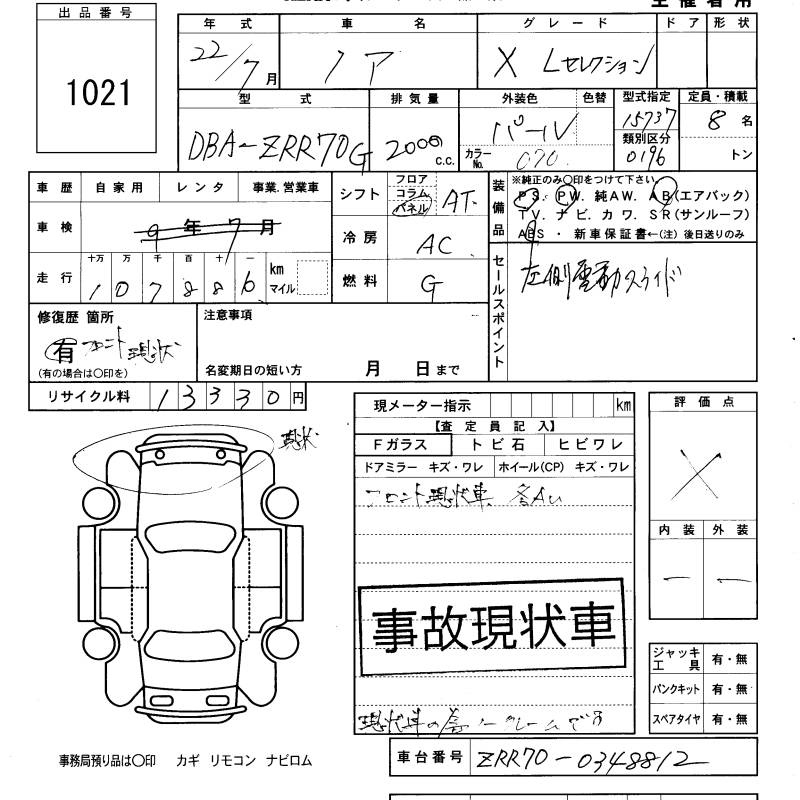 出品番号
1021
主催者用
年式 車名 グレード ドア 形状
22/7月 ノア X Lセレクション
型式 排気量 外装色 色替 型式指定 定員・積載
DBA-ZRR70G 2000 c.c. パール カラーNo. 070 15737 8名
類別区分
0196 トン
車歴 自家用 レンタ 事業.営業車
シフト フロア コラム パネル AT
装備品 ※純正のみ○印をつけて下さい。
PS. PW. 純AW. AB(エアバック)
TV. ナビ. カワ. SR(サンルーフ)
ABS ・ 新車保証書←(注) 後日送りのみ
車検 9年7月
冷房 AC
走行 十万 万 千 百 十 一 km マイル
107886
燃料 G
セールスポイント
左側電動スライド
修復歴 箇所
有 フロント現状
(有の場合は○印を)
注意事項
名変期日の短い方 月 日まで
リサイクル料 13330円
現状
現メーター指示 km
【査定員記入】
Fガラス トビ石 ヒビワレ
ドアミラー キズ・ワレ ホイール(CP) キズ・ワレ
フロント現状車
事故現状車
現状車の為ノークレームです
評価点
×
内装 外装
ー ー
ジャッキ工具 有・無
パンクキット 有・無
スペアタイヤ 有・無
事務局預り品は○印 カギ リモコン ナビロム
車台番号 ZRR70-0348812